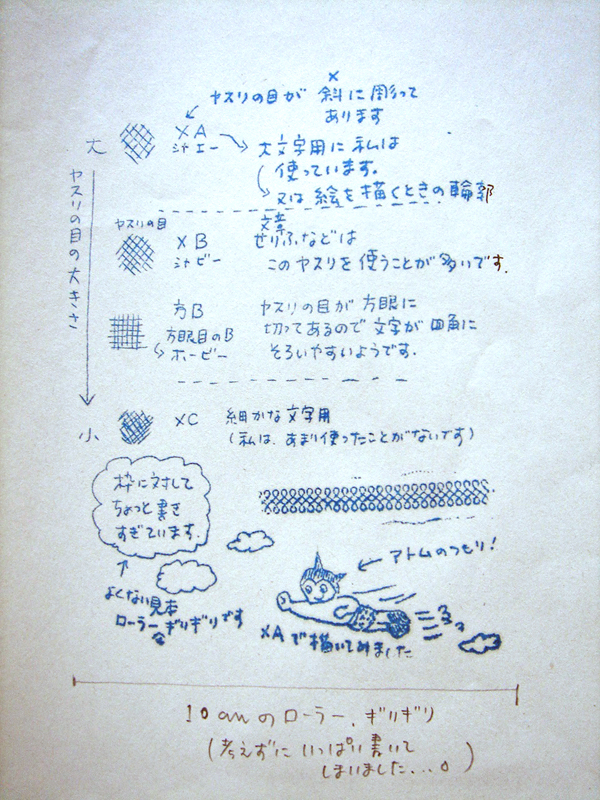 ×
ヤスリの目が 斜に彫って
あります
大
×A
シャエー
大文字用に私は
使っています。
又は絵を描くときの輪郭
ヤスリの目の大きさ
ヤスリの目
×B
シャビー
文章
せりふなどは
このヤスリを使うことが多いです。
方B
方眼目のB
ホービー
ヤスリの目が方眼に
切ってあるので文字が四角に
そろいやすいようです。
小
×C
細かな文字用
(私は、あまり使ったことがないです)
枠に対して
ちょっと書き
すぎています。
よくない見本
ローラーギリギリです
な
アトムのつもり!
×Aで描いてみました
10cmのローラー、ギリギリ
(考えずにいっぱい書いて
しまいました...。)